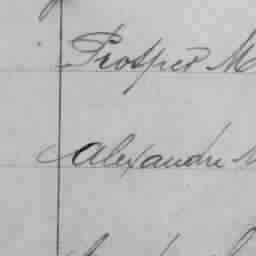 Prosper M
Alexandre M